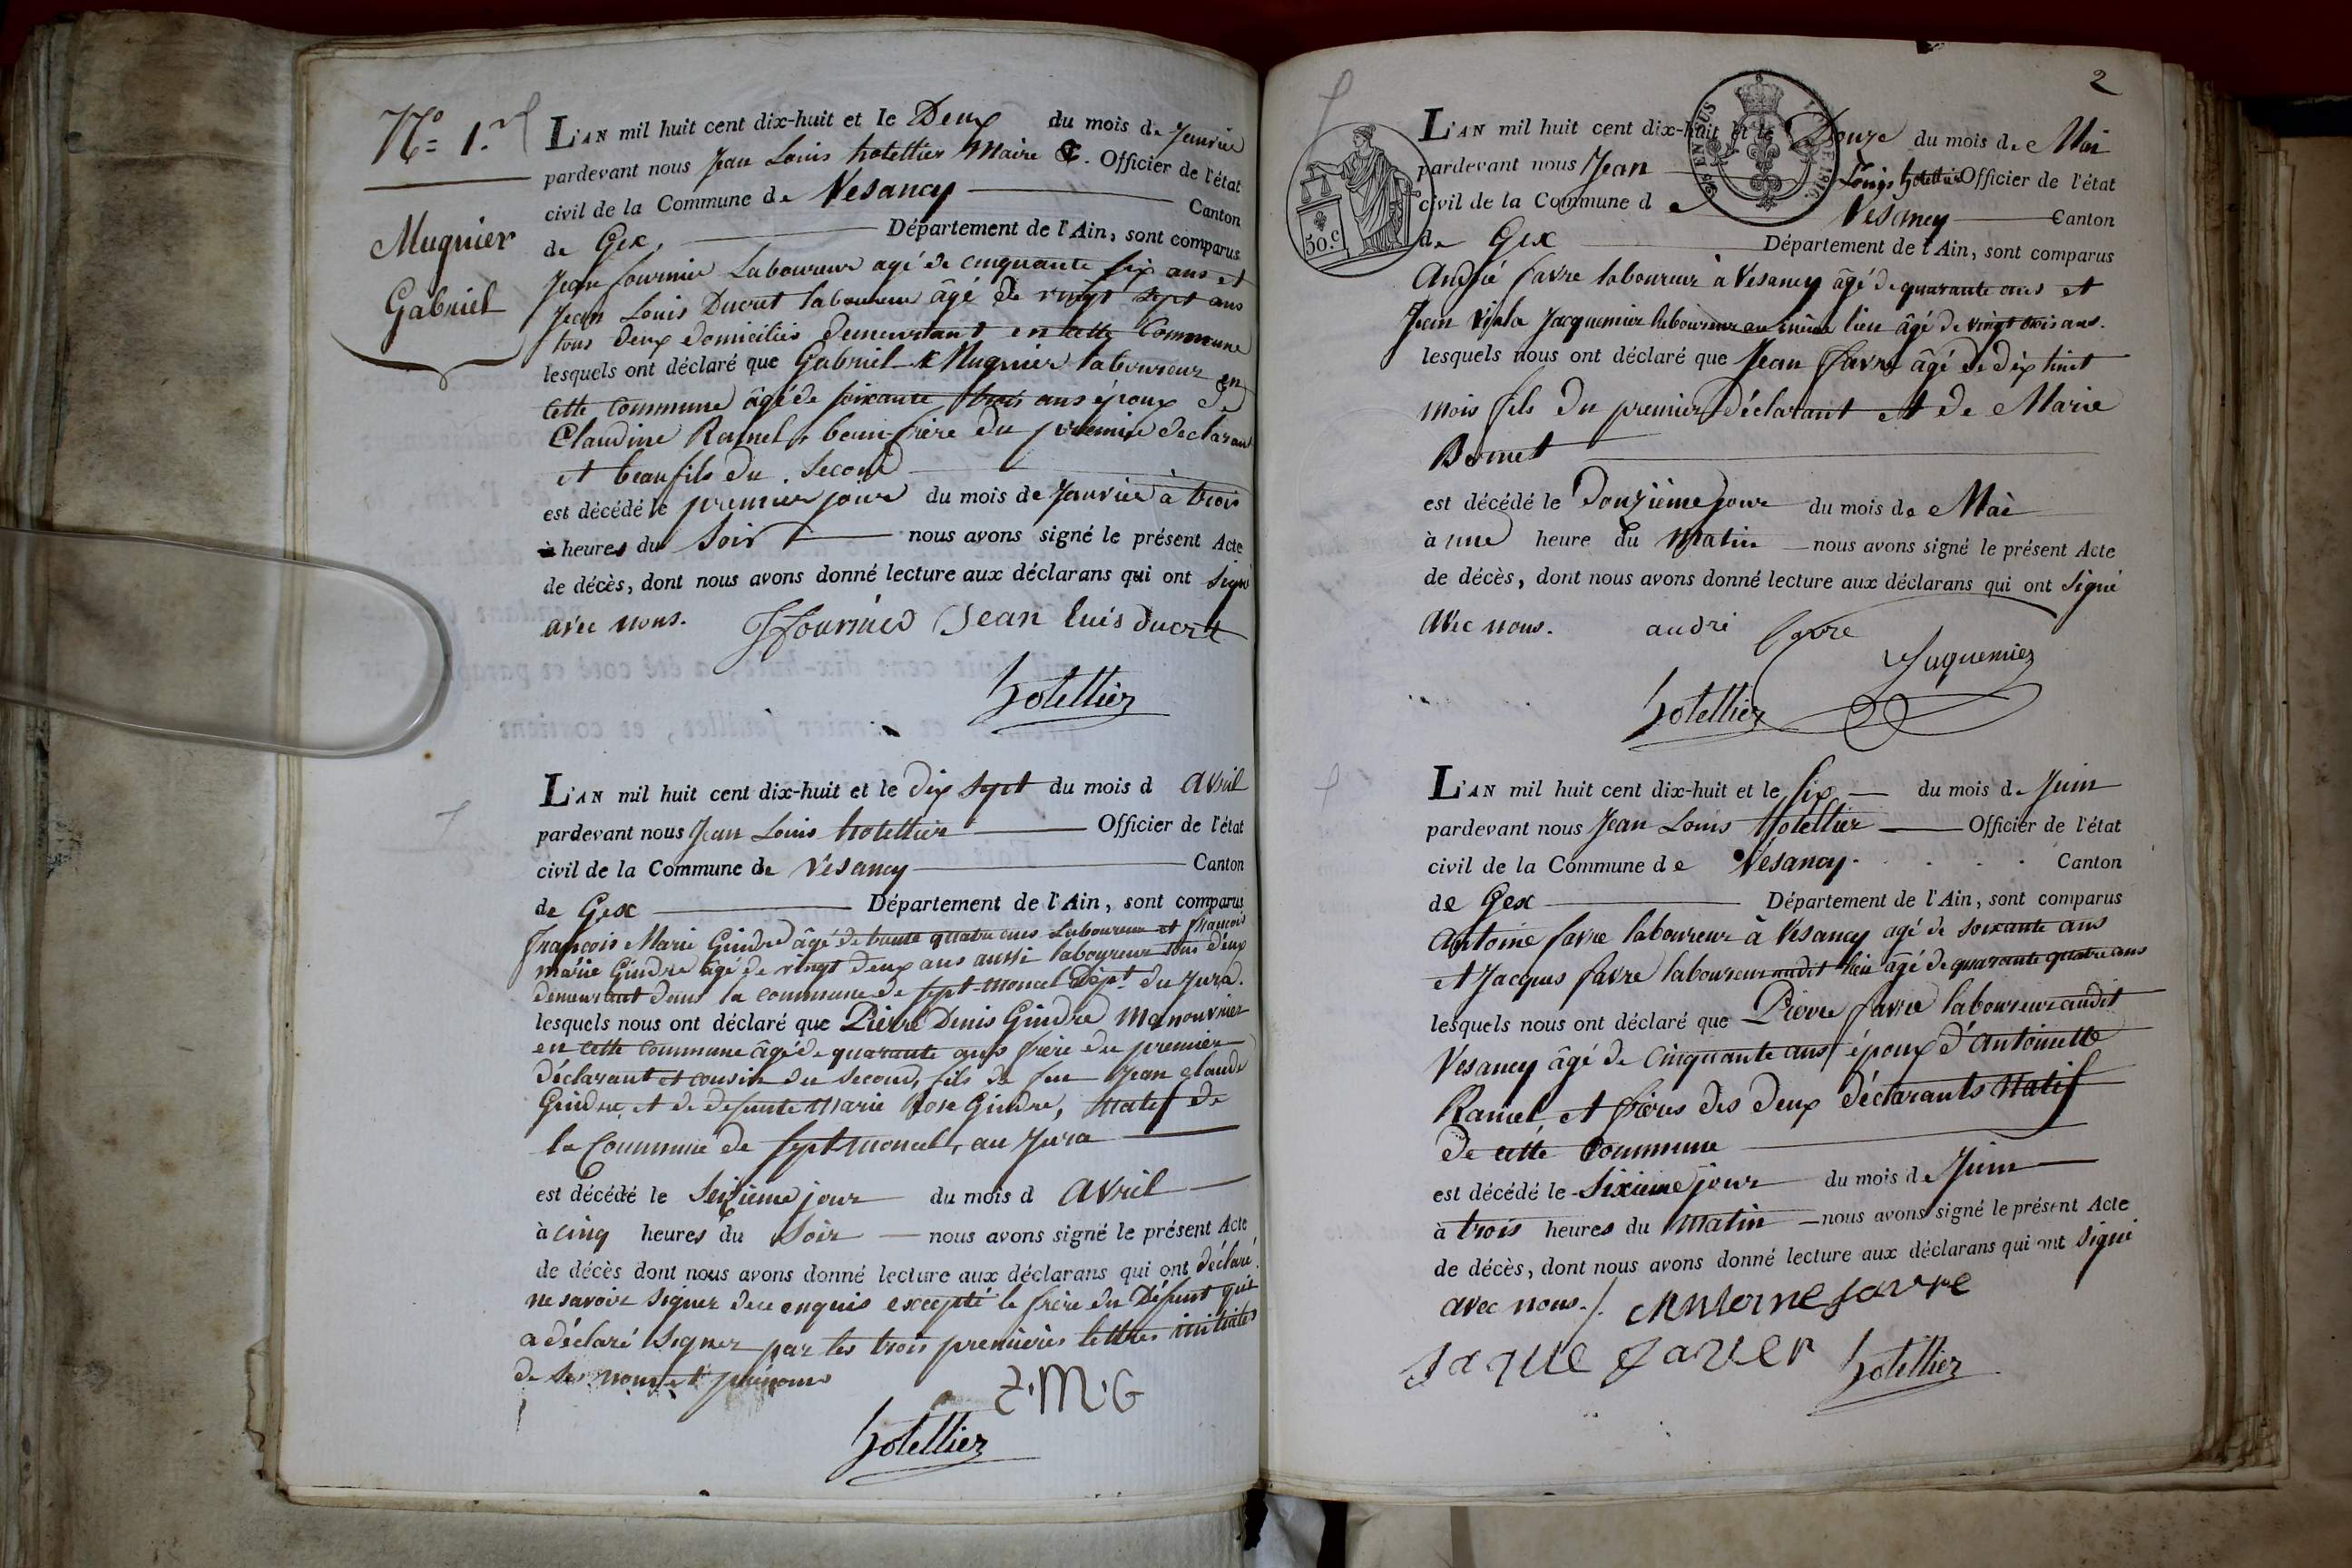 N.º 1.er
Mugnier
Gabriel
L'AN mil huit cent dix-huit et le Deux du mois de Janvier
pardevant nous Jean Louis hotellier Maire &. Officier de l'état
civil de la Commune de Vesancy Canton
de Gex, Département de l'Ain, sont comparus
Jean fournier Laboureur agé de cinquante six ans et
Jean Louis Ducret laboureur âgé de vingt sept ans
tous deux domiciliés demeurtant en cette Commune
lesquels ont déclaré que Gabriel Mugnier laboureur en
cette commune âgé de soixante trois ans époux de
Claudine beau-frère du premier déclarant
et beau fils du second
est décédé le premier jour du mois de Janvier à trois
heures du Soir nous avons signé le présent Acte
de décès, dont nous avons donné lecture aux déclarans qui ont signé
avec nous. JFournier Jean luis ducret
hotellier
L'AN mil huit cent dix-huit et le dix sept du mois d avril
pardevant nous Jean Louis hotellier Officier de l'état
civil de la Commune de Vésancy Canton
de Gex Département de l'Ain, sont comparus
François Marie Gindre âgé de trente quatre ans Laboureur et françois
marie Gindre âgé de vingt deux ans aussi laboureur tous deux
demeurtant dans la commune de sept-moncel Dépt. du Jura.
lesquels nous ont déclaré que Pierre Denis Gindre Manouvrier
en cette commune âgé de quarante ans frère du premier
déclarant et cousin du second, fils de feu Jean claude
Gindre, et de defunte Marie Rose Gindre, natif de
la Commune de sept-moncel, au Jura
est décédé le Seizième jour du mois d avril
à cinq heures du Soir nous avons signé le présent Acte
de décès dont nous avons donné lecture aux déclarans qui ont déclaré
ne savoir signer de ce enquis excepté le frère du Défunt qui
a déclaré signer par les trois premières lettres initiales
de ses noms et prénoms
F.M.G
hotellier
2
50.c
L'AN mil huit cent dix-huit et le Douze du mois de Mai
pardevant nous Jean Louis hotellier Officier de l'état
civil de la Commune de Vesancy Canton
de Gex Département de l'Ain, sont comparus
André favre laboureur à Vesancy âgé de quarante ans et
Jean Jacquemier laboureur au même lieu âgé de vingt trois ans.
lesquels nous ont déclaré que Jean favre âgé de dix huit
mois fils du premier déclarant et de Marie
est décédé le Douzième jour du mois de Mai
à une heure du matin nous avons signé le présent Acte
de décès, dont nous avons donné lecture aux déclarans qui ont signé
avec nous. andré favre
Juquemier
hotellier
L'AN mil huit cent dix-huit et le six du mois de Juin
pardevant nous Jean Louis Hotellier Officier de l'état
civil de la Commune de Vésancy. Canton
de Gex Département de l'Ain, sont comparus
Antoine favre laboureur à Vésancy agé de soixante ans
et Jacques favre laboureur audit lieu âgé de quarante quatre ans
lesquels nous ont déclaré que Pierre favre laboureur audit
Vesancy âgé de cinquante ans époux d'antoinette
Ramel, et frères des deux déclarants Natif
de cette Commune
est décédé le Sixième jour du mois de Juin
à trois heures du matin nous avons signé le présent Acte
de décès, dont nous avons donné lecture aux déclarans qui ont signé
avec nous./. Antoine favre
Jaque faver hotellier